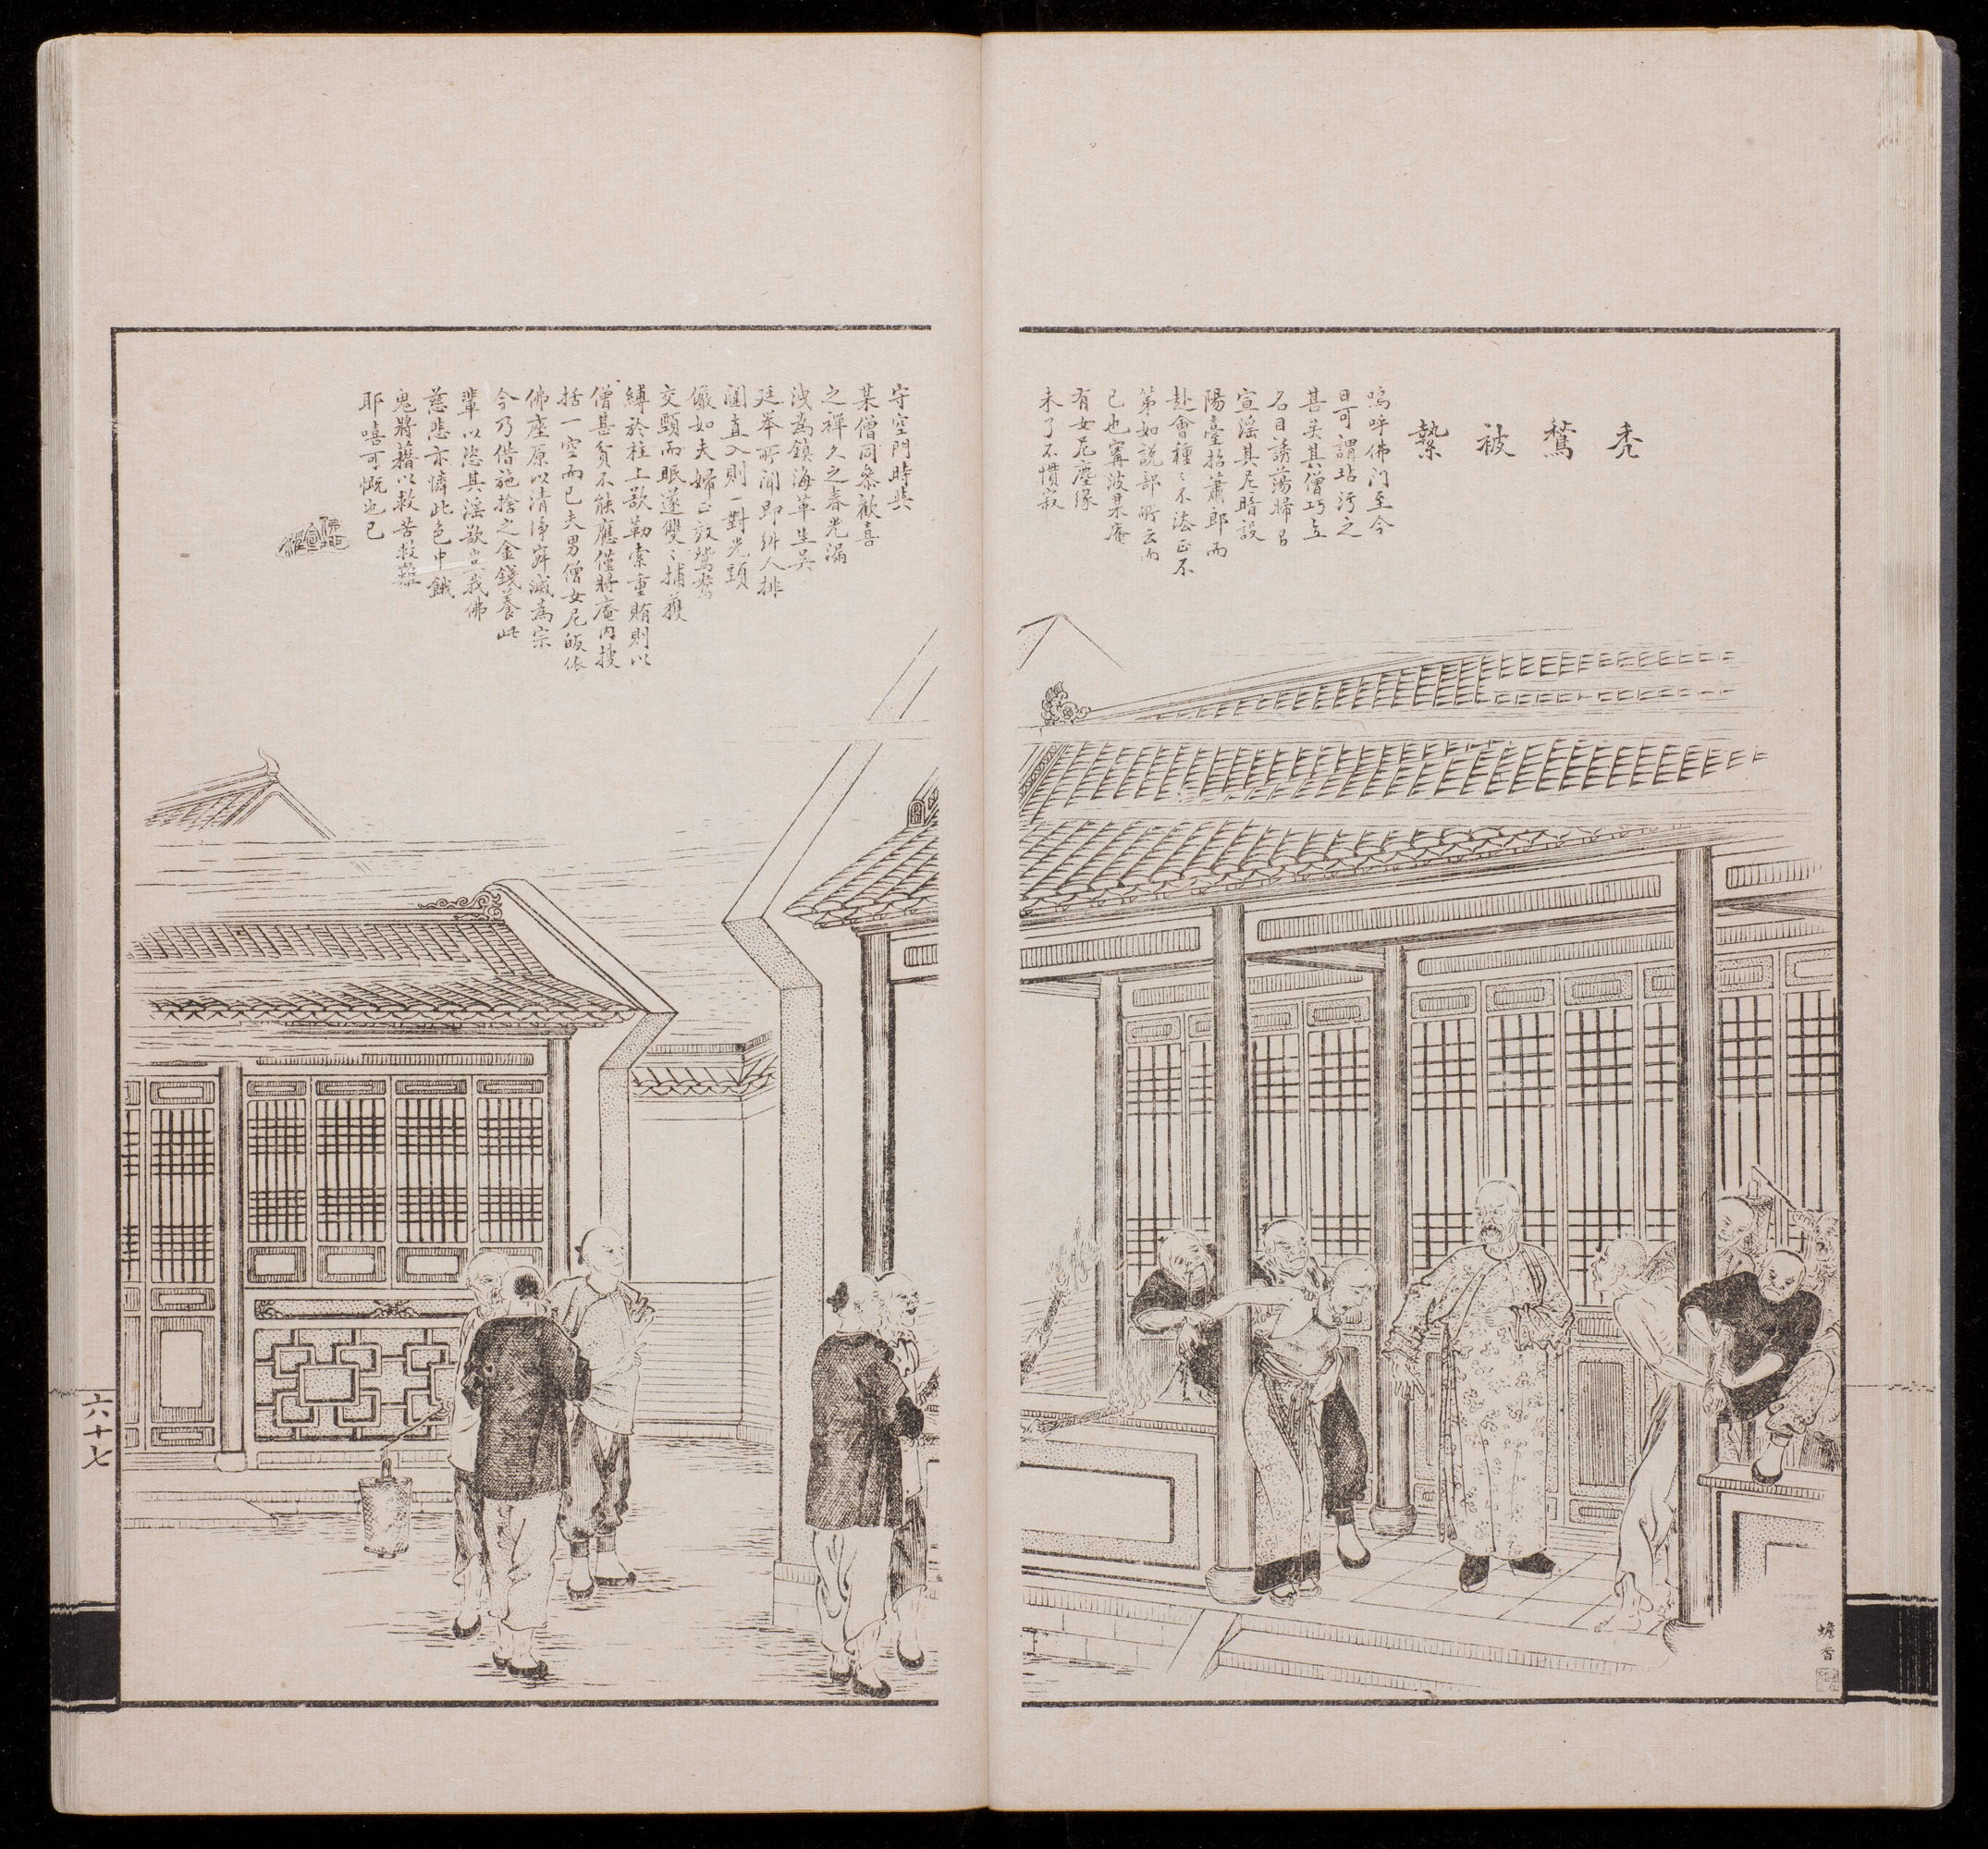 禿鶖被縶
嗚呼佛門至今
日可謂玷污之
甚矣其僧巧立
名目誘蕩婦召
宣淫其尼暗設
陽臺招蕭郎而
赴會種〻不法正不
第如說部所云而
已也甯波某庵
有女尼塵緣
未了不慣寂
守空門時與
某僧同參歡喜
之禪久之春光漏
洩為鎮海革生吳
廷舉所聞即糾人排
闥直入則一對光頭
儼如夫婦正效鴛鴦
交頸而眠遂雙〻捕獲
縛於柱上欲勒索重賄則以
僧甚貧不能應僅將庵內搜
括一空而已夫男僧女尼皈依
佛座原以清淨寂滅為宗
今乃借施捨之金錢養此
輩以恣其淫欲豈我佛
慈悲亦憐此色中餓
鬼將藉以救苦救難
耶噫可慨也已
蟾香
六十七